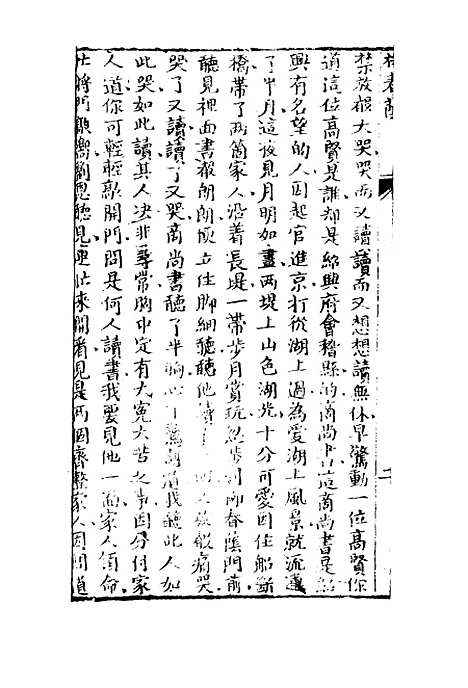 禁放聲大哭哭而又讀讀而又想想讀無休早驚動一位高賢你
道這位高賢是誰却是紹興府會稽縣的商尚書這商尚書是紹
興有名望的人因起官進京打從湖上過為愛湖上風景就流連
了半月這夜見月明如晝兩堤上山色湖光十分可愛因住船斷
橋帶了兩箇家人沿着長堤一帶步月賞玩忽步到柳春蔭門前
聽見裡面書聲朗朗便立住脚細聽聽他讀了又放聲痛哭
哭了又讀讀了又哭商尚書聽了半晌心下驚道我聽此人如
此哭如此讀其人决非尋常胸中定有大寃大苦之事因分付家
人道你可輕輕敲開門問是何人讀書我要見他一面家人領命
忙將門敲響劉恩聽見連忙來開看見是兩個齊整家人因問道